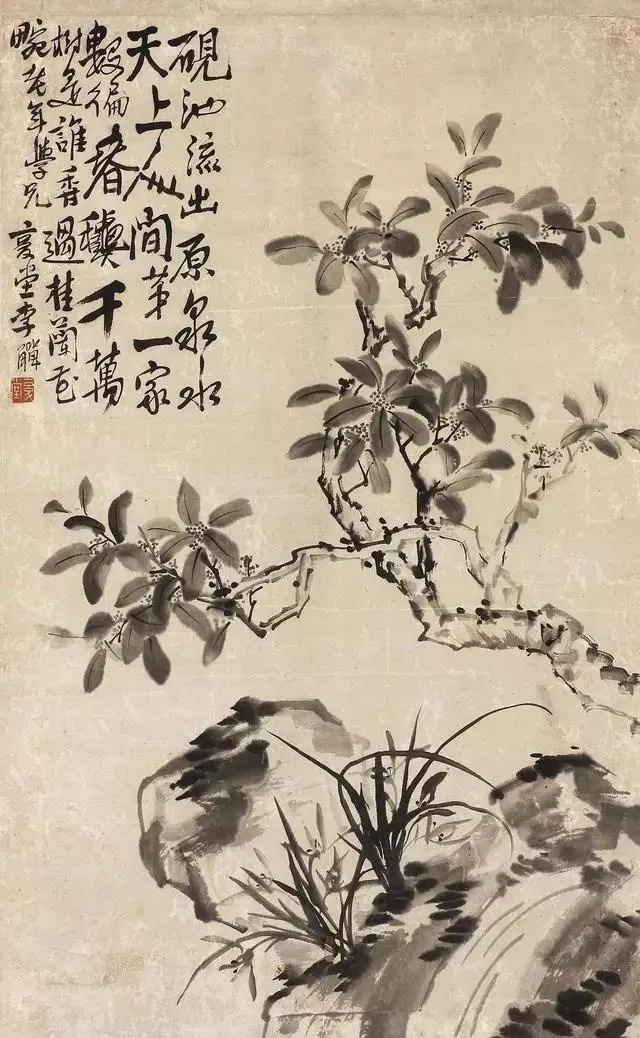 硯池流出原泉水
天上人間第一家
數徧春龝千萬
樹是誰香過桂蘭花
畹老年學兄 复堂李觶